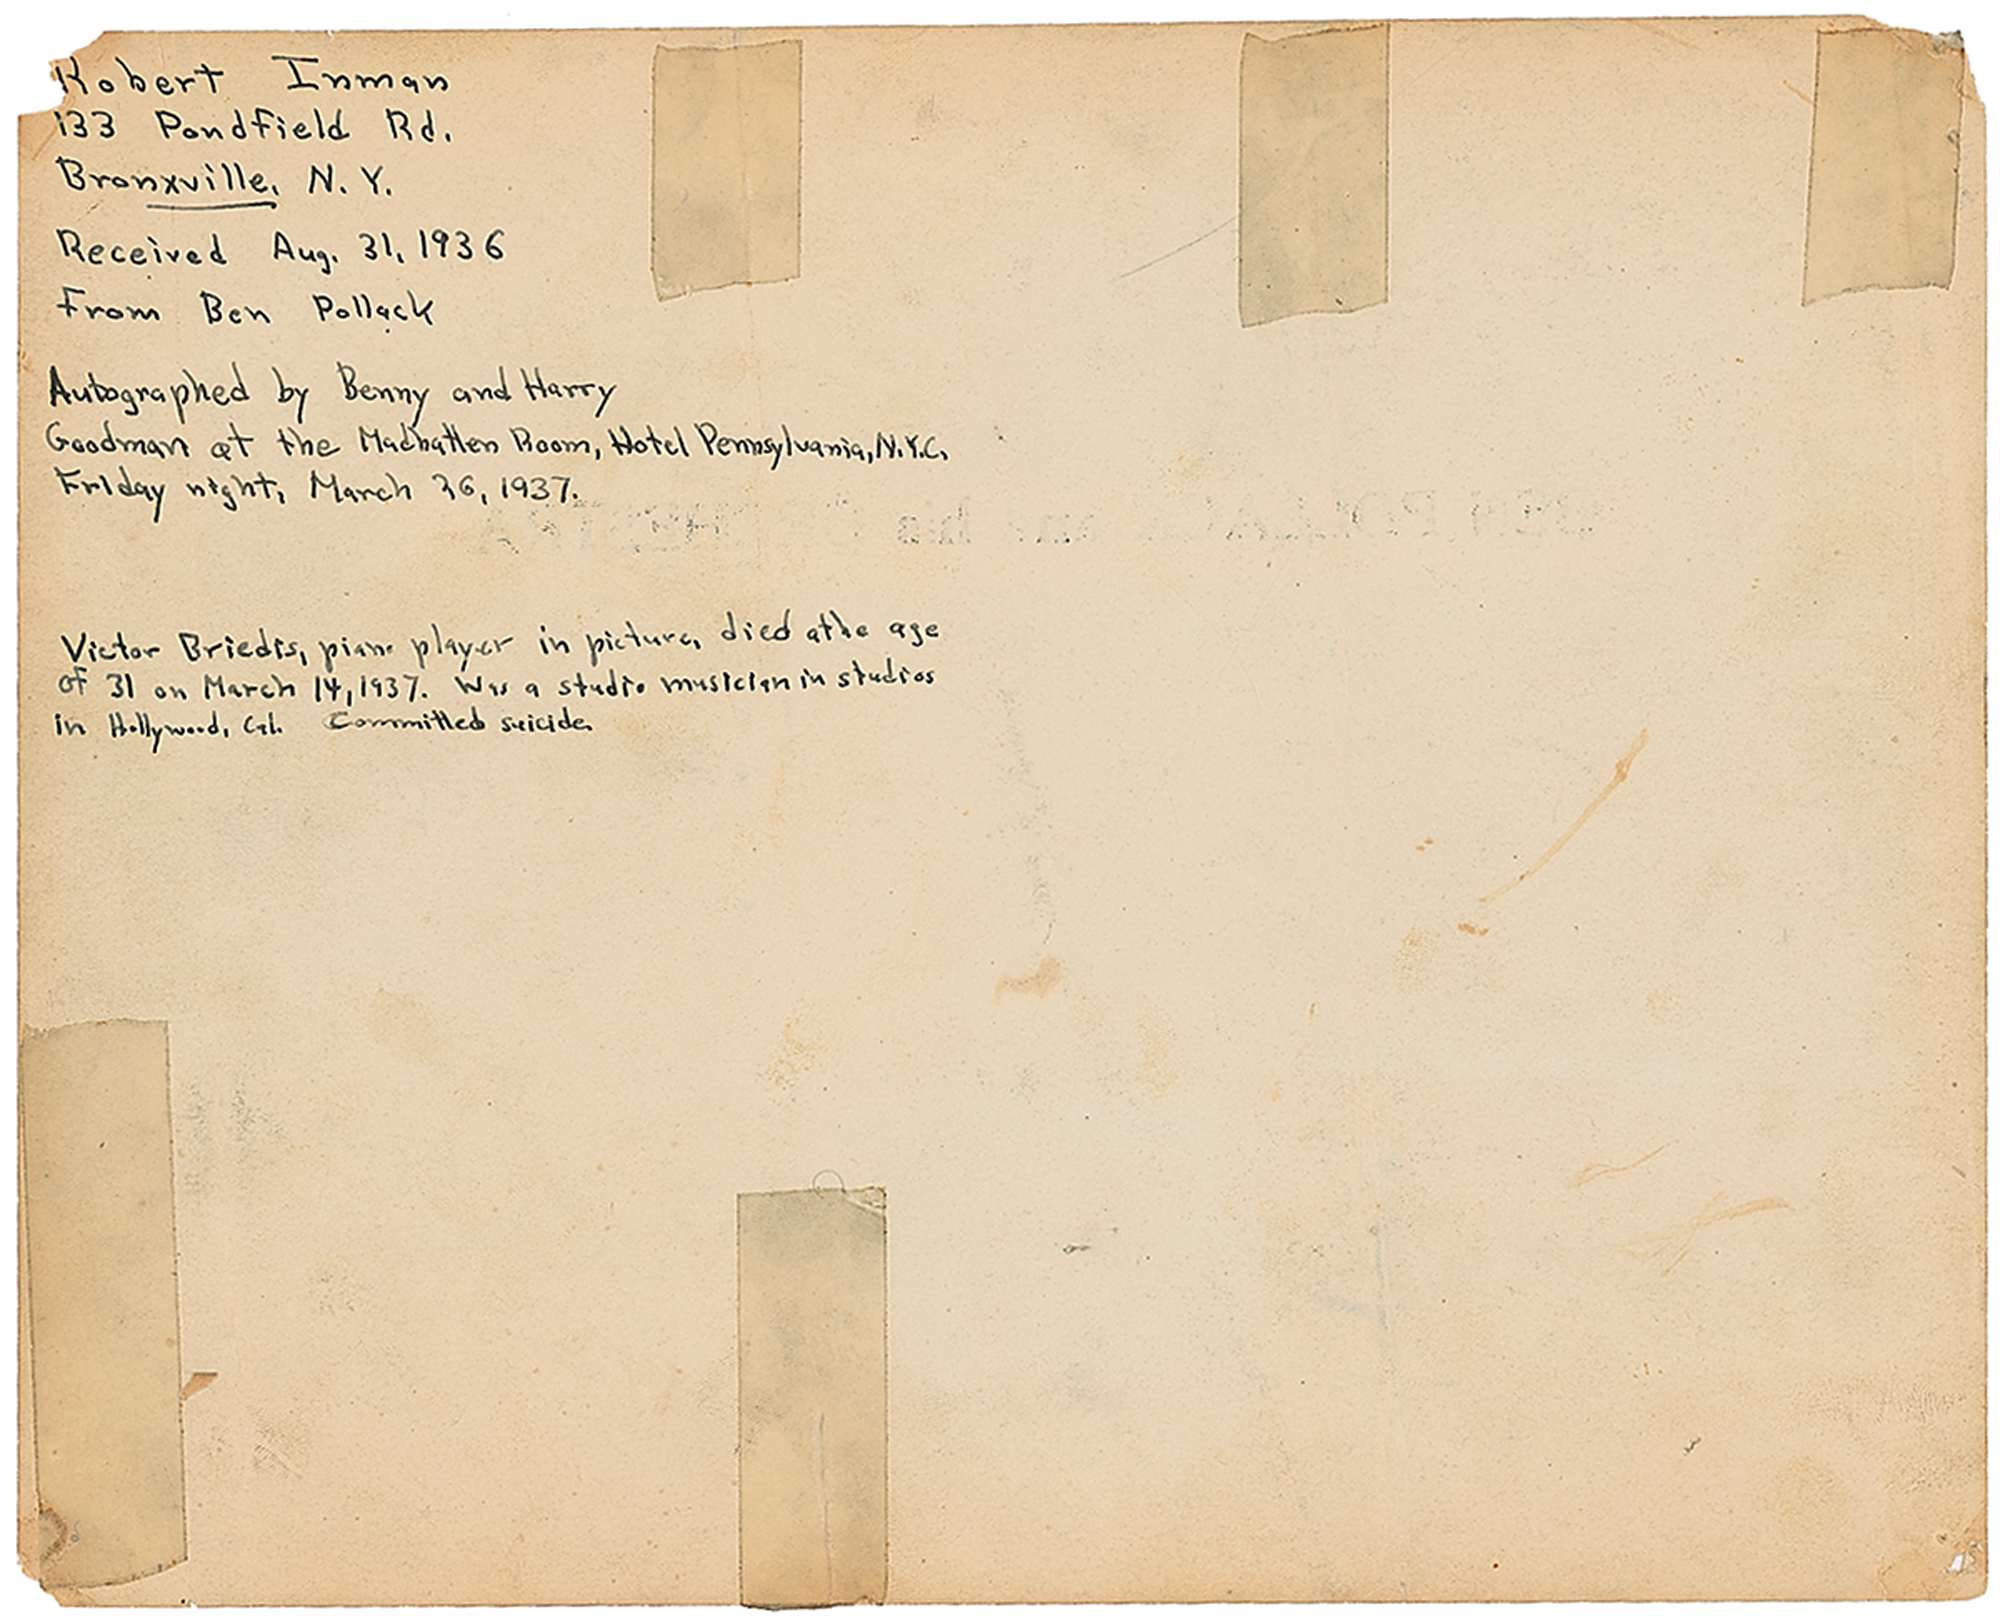 Robert Inman
133 Pondfield Rd.
Bronxville, N.Y.
Received Aug. 31, 1936
From Ben Pollack
Autographed by Benny and Harry
Goodman at the Madhatten Room, Hotel Pennsylvania, N.Y.C.
Friday night, March 26, 1937.
BEN POLLACK and his ORCHESTRA
Victor Briedis, piano player in picture, died at the age
of 31 on March 14, 1937. Was a studio musician in studios
in Hollywood, Cal. Committed suicide.